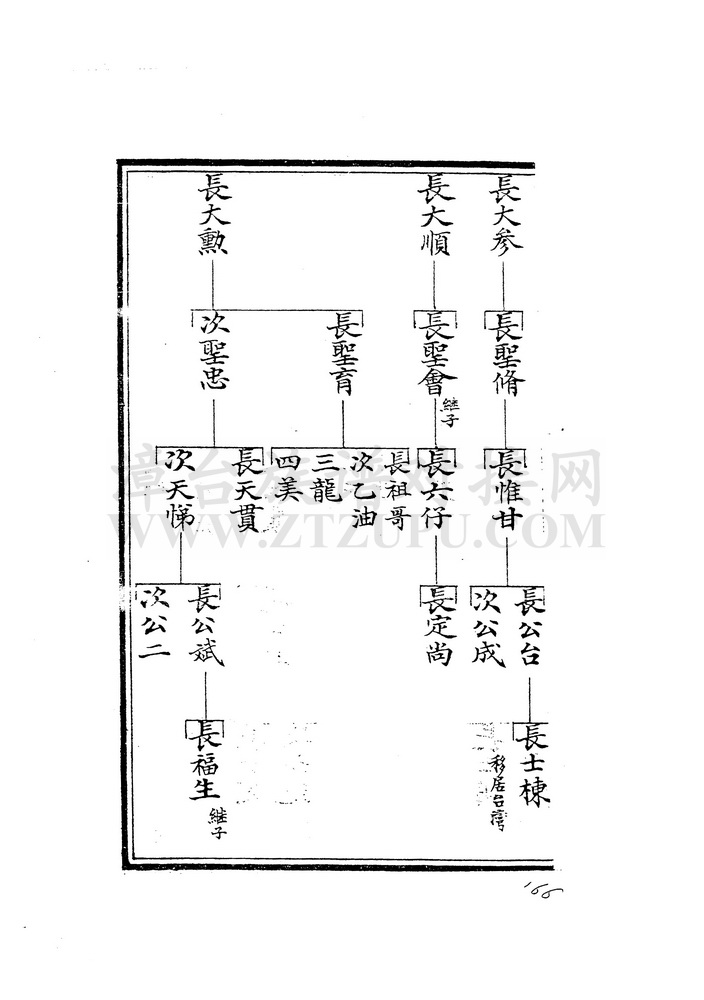 長大參
長大順
長大勲
長聖脩
長聖會
継子
長聖育
次聖忠
長惟甘
長六仔
長祖哥
次乙油
三龍
四美
長天貫
次天悌
長公台
次公成
長定尚
長公斌
次公二
長士棟
移居台湾
長福生
継子
166
章台族谱对接网
WWW.ZTZUPU.COM